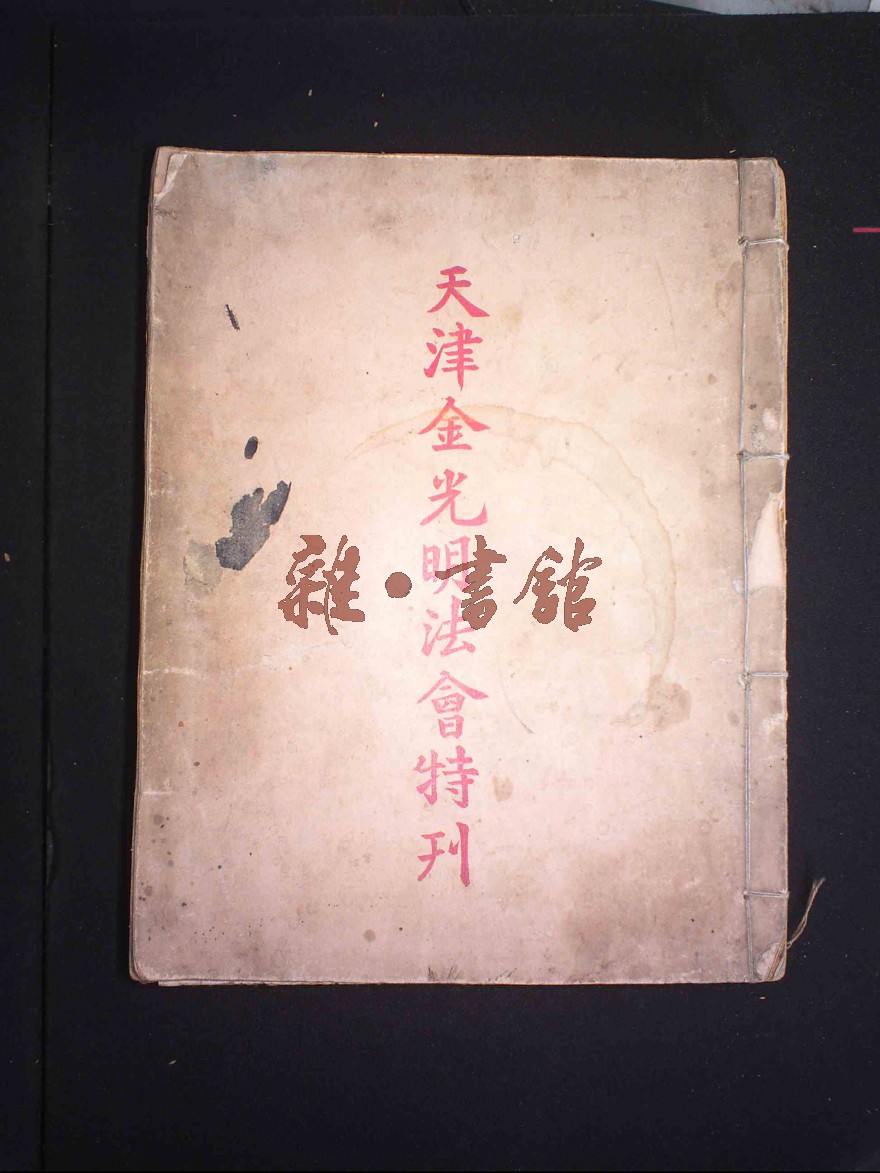 天津金光明法會特刊
雜·書館